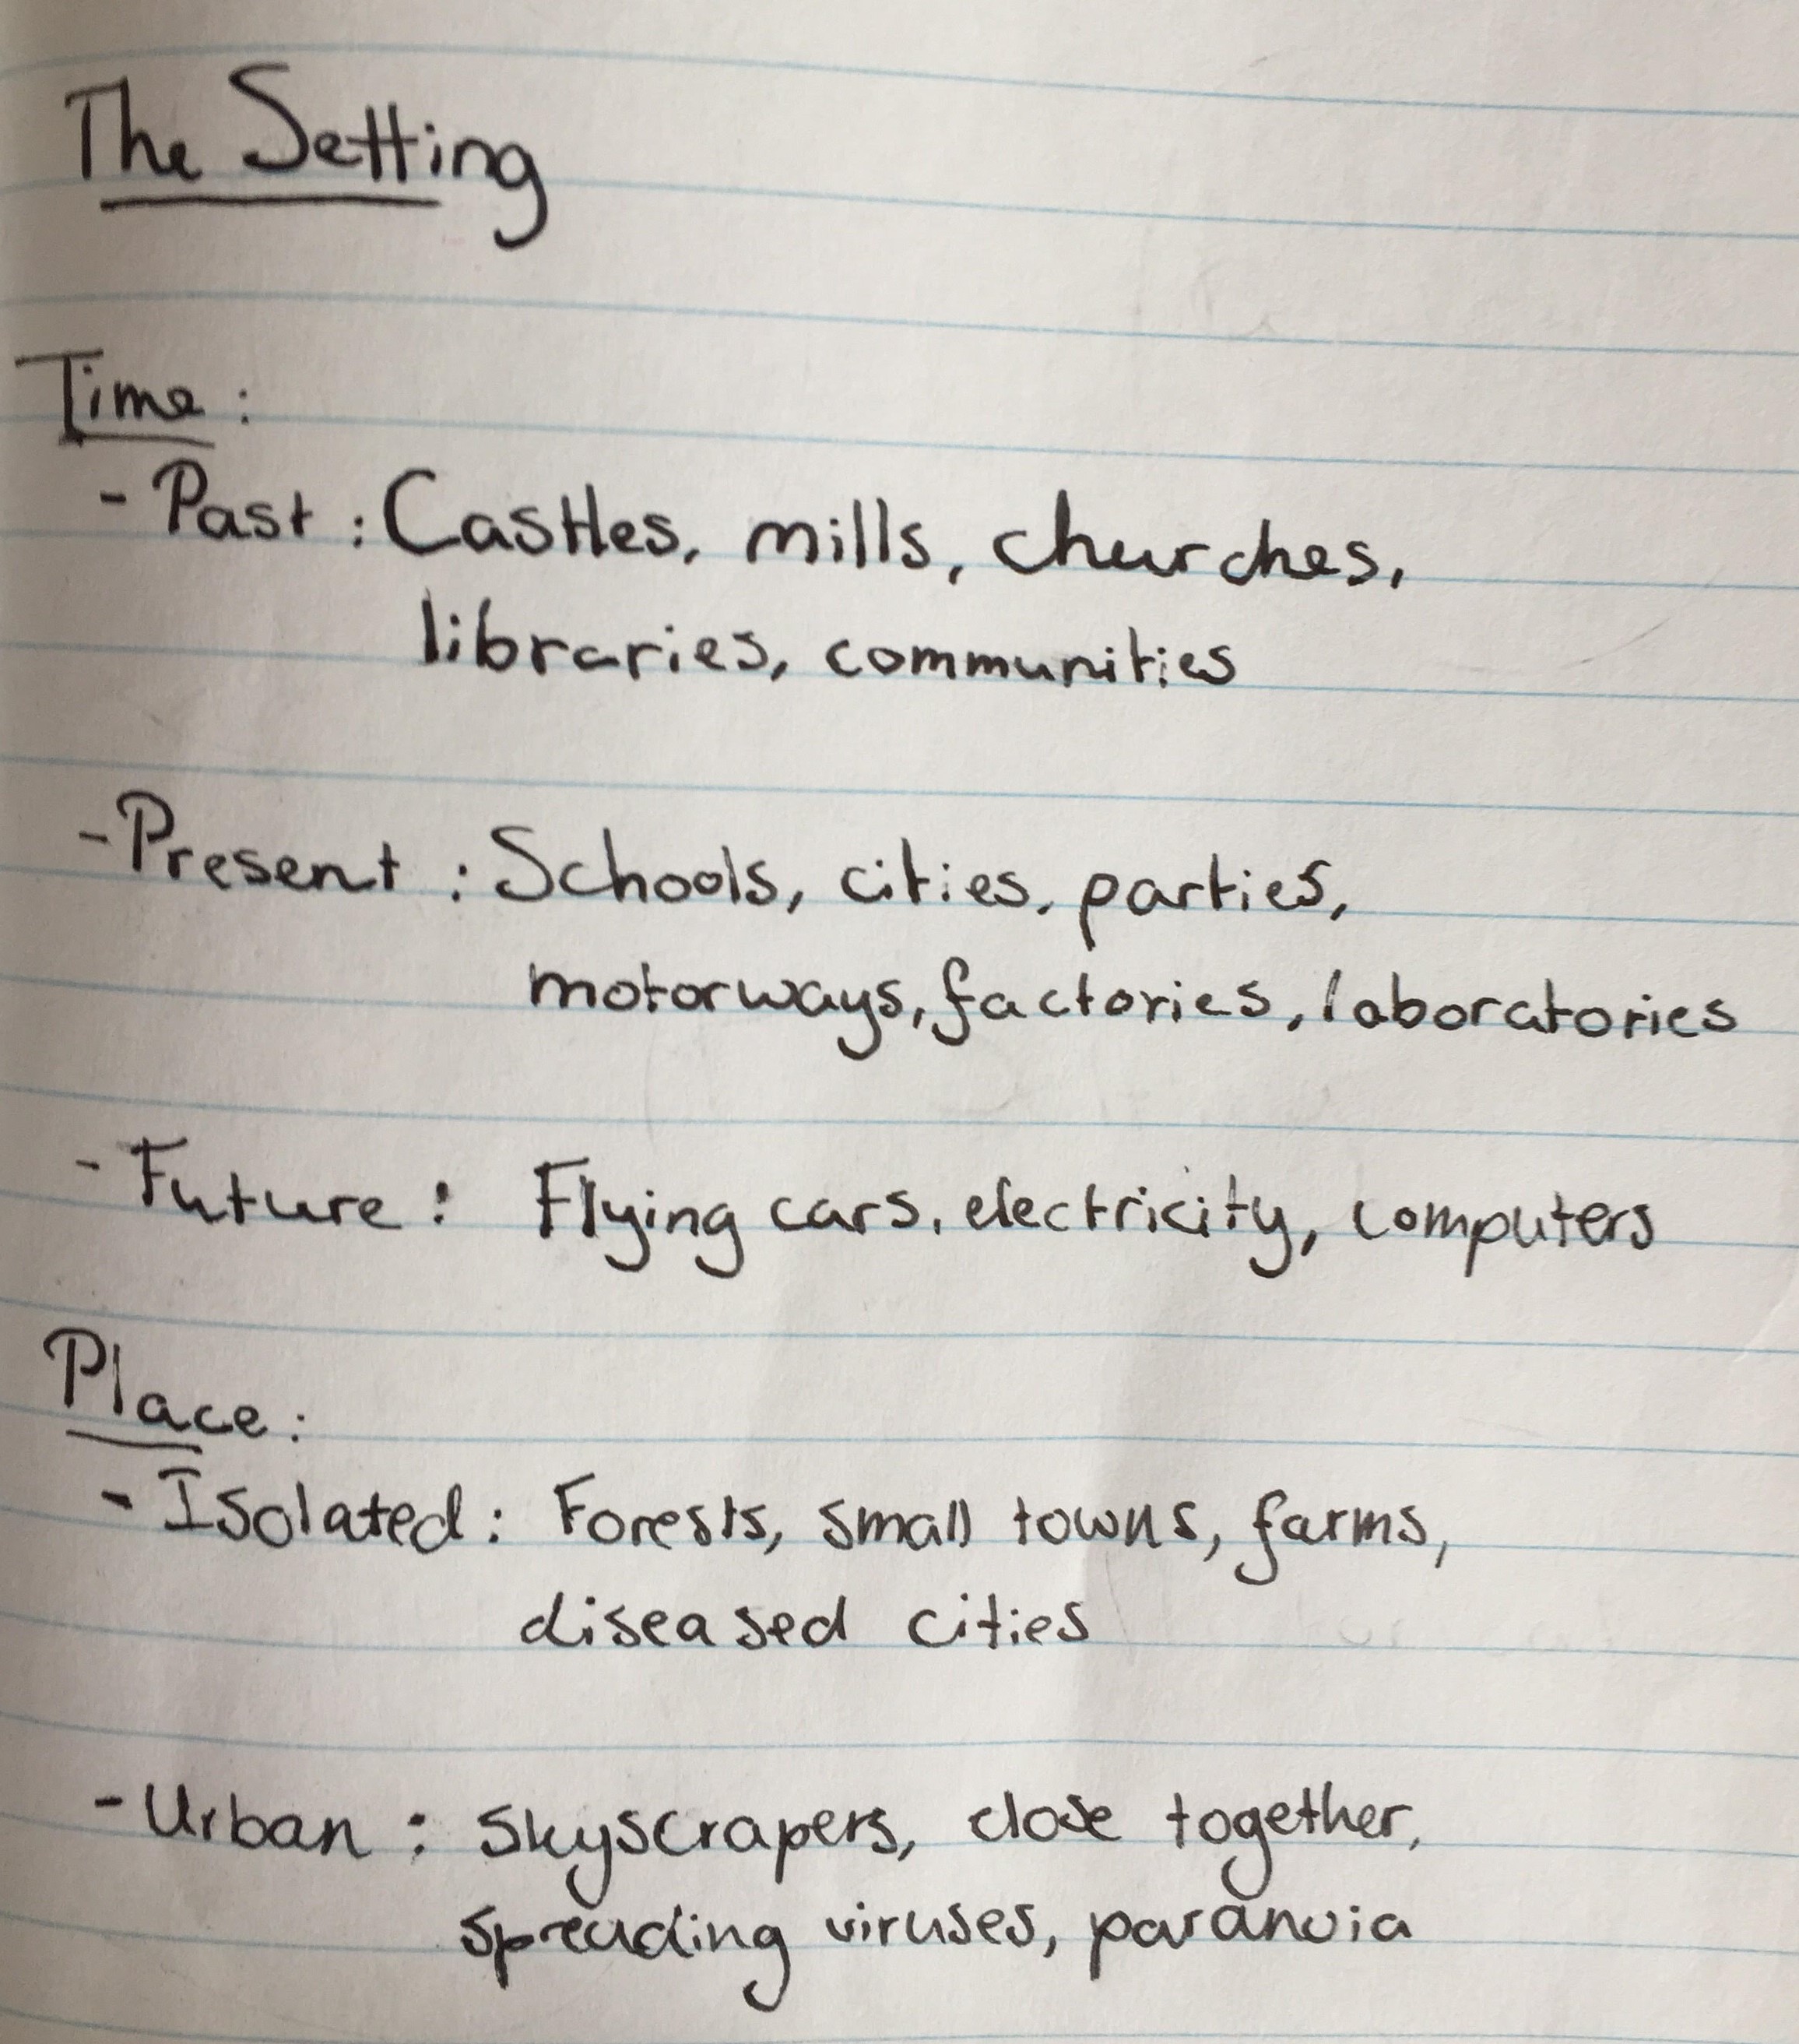 The Setting
Time :
- Past : Castles, mills, churches,
libraries, communities
- Present : Schools, cities, parties,
motorways, factories, laboratories
- Future : Flying cars, electricity, computers
Place :
- Isolated : Forests, small towns, farms,
diseased cities
- Urban : Skyscrapers, close together,
spreading viruses, paranoia